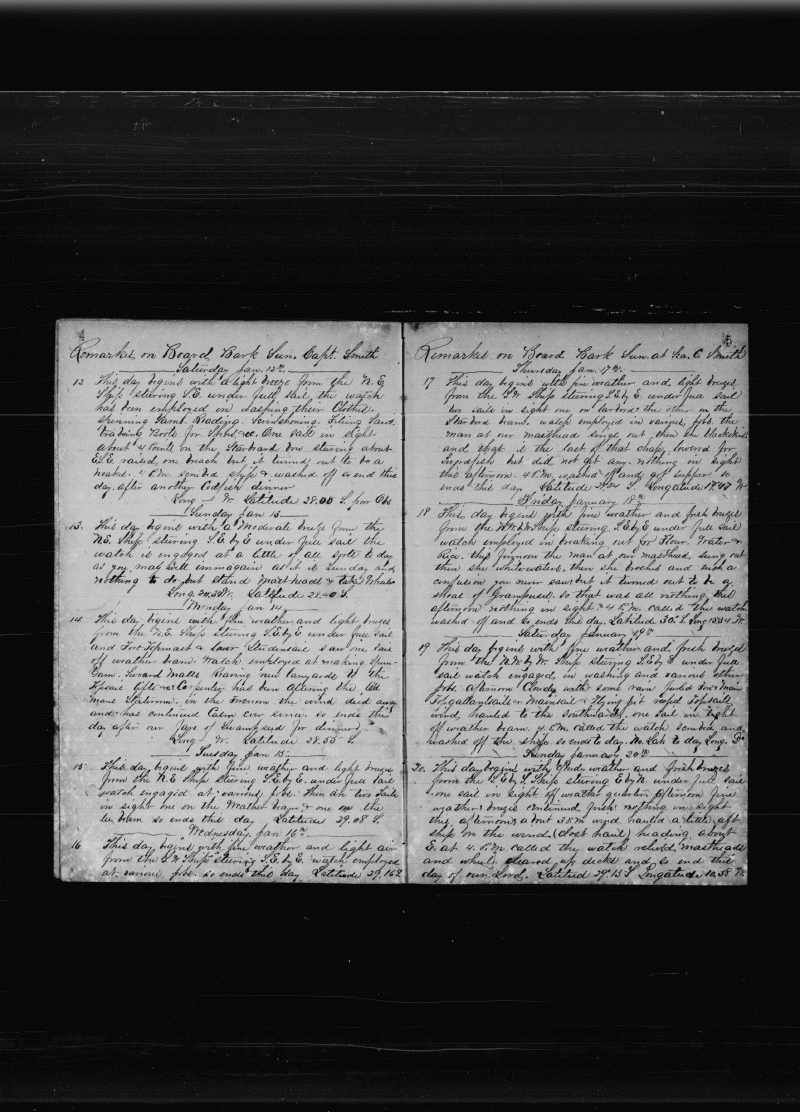 4
Remarks on Board Bark Sun. Capt. Smith
Saturday Jan. 12th
12 This day begins with a light breeze from the N.E,
Ship steering S.E. under full sail the watch
has been employed on washing their Clothes.
Spinning Yarns. Filing Saws.
Boots for &c. One sail in sight
about 4 points on the Starboard bow steering about
E.S.E. raised on branch but it turned out to be a
4 P.M. scrubed ship & washed off so ends this
day after another Codfish dinner
Long W. Latitude 28.00 S. poor Obs
Sunday Jan 13
13. This day begins with a Moderate breeze from the
N.E. Ship steering S.E. by E under full sail the
watch is engaged at a little of all sorts to day
as you may well immagain as it is Sunday and
nothing to do but stand Mastheads & take Whales
Long. W. Latitude 28.40 S.
Monday Jan 14
14. This day begins with fine weather and light breezes
from the N.E. Ship steering S.E by E under full sail
and Fore Topmast & lower Studensail saw one sail
off weather beam. Watch employed at making Spun-
Yarn. Sword Matts Reaving new lanyards to the
Topsail lifts & Carpenter has been altering the old
Mans Stateroom. in the Forenoon the wind died away
and has continued Calm ever since. so ends this
day after our for dinner
Long W. Latitude 28.55 S.
Tuesday Jan 15
15 This day begins with fine weather and light breezes
from the N.E. Ship steering S.E. by E. under full sail
watch engaged at various jobs. there are two sails
in sight one on the Weather beam & one on the
lee beam so ends this day Latitude 29.08 S.
Wednesday Jan 16th
16 This day begins with fine weather and light air
from the S.W Ship steering S.E. by E. watch employed
at various jobs. so ends this day Latitude 29.16 S
5.
Remarks on Board Bark Sun. at Sea. C. Smith
Thursday Jan. 17th
17 This day begins with fine weather and light breezes
from the S.W Ship steering S.E by E under full sail
two sails in sight one on larbord & the other on the
Starbord beam. watch employed in various jobs. the
man at our masthead sings out there she blackskin
and that is the last of that chap, lowered for
but did not get any. nothing in sight
this afternoon. 4 P.M. washed off and got supper so
ends this day Latitude S. Longatude W.
Friday January 18th
18 This day begins with fine weather and fresh breezes
from the N.W. by W Ship steering S.E by E under full sail
watch employed in breaking out for Flour, Water &
Rice. this forenoon the man at our masthead sung out
there she whitewaters, there she breches and such a
confusion you never saw but it turned out to be a
shoal of Grampuses so that was all nothing this
afternoon nothing in sight & 4 P.M. called the watch
washed off and so ends the day. Latitude 30. S. Long 15.34 W
Saturday January 19th
19 This day begins with fine weather and fresh breezes
from the N.W. by W. Ship steering S.E by E under full
sail watch engaged in washing and various other
jobs. afternoon Cloudy with some rain furled Fore & Main
Topgallantsails & Mainsail & Flying jib reefed Topsails
wind hauled to the Southward. one sail in sight
off weather beam. 4. P.M. called the watch scrubed and
washed off the ship so ends to day. No Lat. to day Long. Do
Sunday January 20th
20. This day begins with weather and fresh breezes
from the S.E by S Ship steering E by N. under full sail
one sail in sight off weather quarter. afternoon fine
weather breeze continued fresh nothing in sight
this afternoon, about 3 P.M wind hauled a little aft
ship on the wind (close haul) heading about
E. at 4. P.M called the watch relieved mastheads
and wheel, cleared up decks and so ends this
day of our Lord. Latitud 29.13 S Longatude 10.58 W.